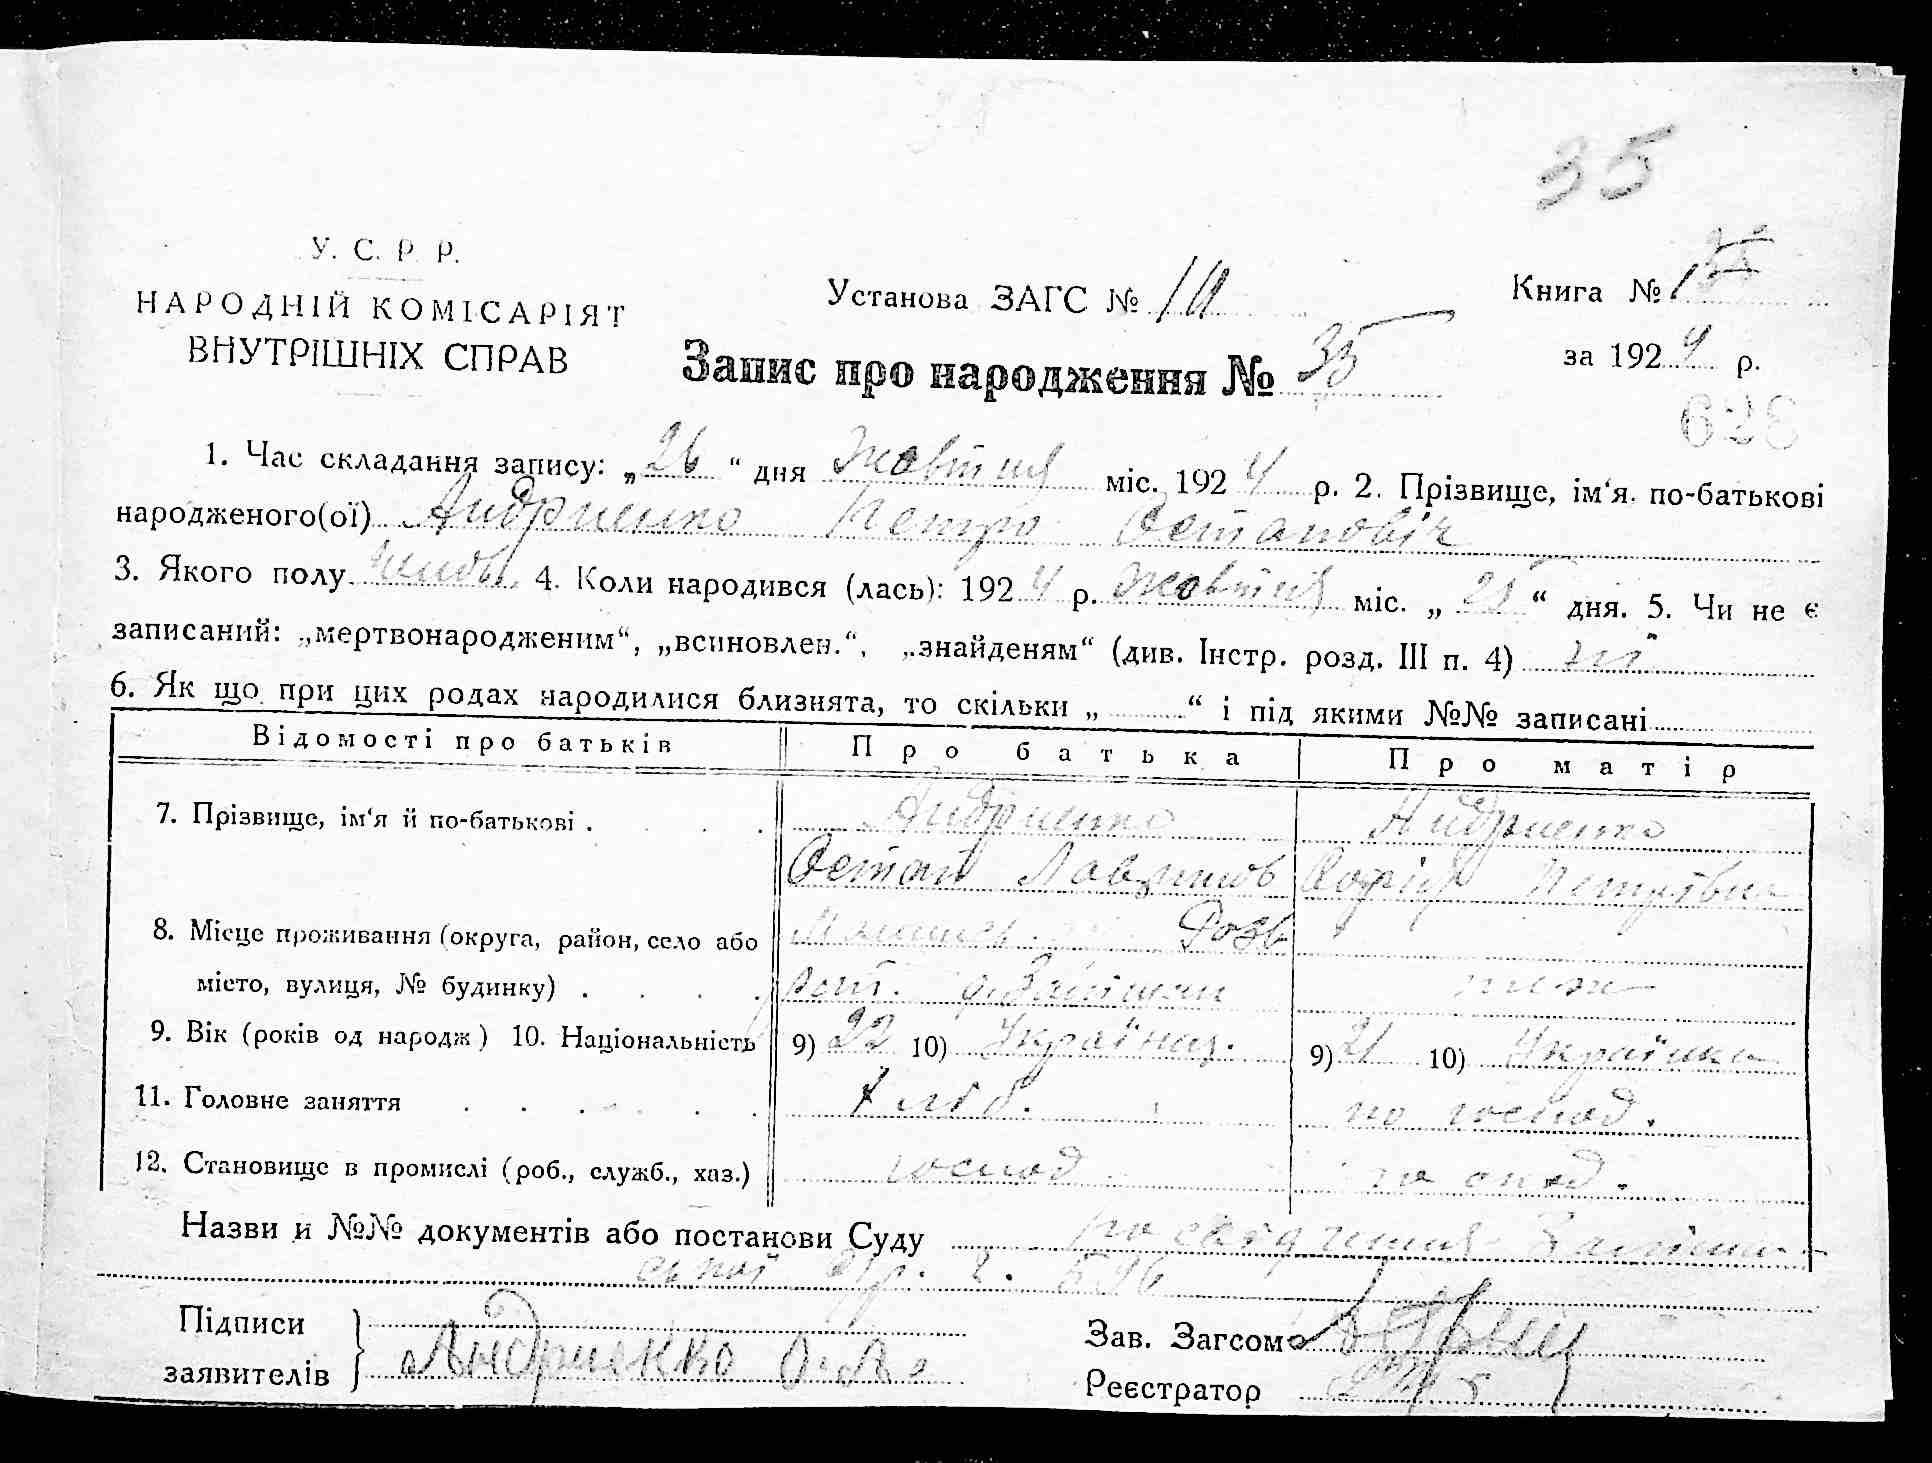 35
У. С. Р. Р.
НАРОДНІЙ КОМІСАРІЯТ
ВНУТРІШНІХ СПРАВ
Установа ЗАГС №
Книга № 1
за 1924 р.
Запис про народження № 35
623
1. Час складання запису: „26“ дня Жовтня міс. 1924 р. 2. Прізвище, ім‘я, по-батькові
народженого(ої) Андриенко Петро Остапович
3. Якого полу 4. Коли народився (лась): 1924 р. Жовтня міс. „25“ дня. 5. Чи не є
записаний: „мертвонародженим“, „всиновлен.“, „знайденям“ (див. Інстр. розд. III п. 4) ні
6. Як що при цих родах народилися близнята, то скільки „ “ і під якими №№ записані
Відомості про батьків Про батька Про матір
7. Прізвище, ім‘я й по-батькові . . . . Андриенко Андриенко
Остап Лавринов Софія Петрівна
8. Місце проживання (округа, район, село або
місто, вулиця, № будинку) . . . .
9. Вік (років од народж) 10. Національність 9) 22 10) Україн 9) 21 10) Українка
11. Головне заняття . . . . . . хліб. по господ.
12. Становище в промислі (роб., служб., хаз.) господ
Назви й №№ документів або постанови Суду посвідчення
Підписи
заявителів Андриенко О. Л.
Зав. Загсом
Реєстратор